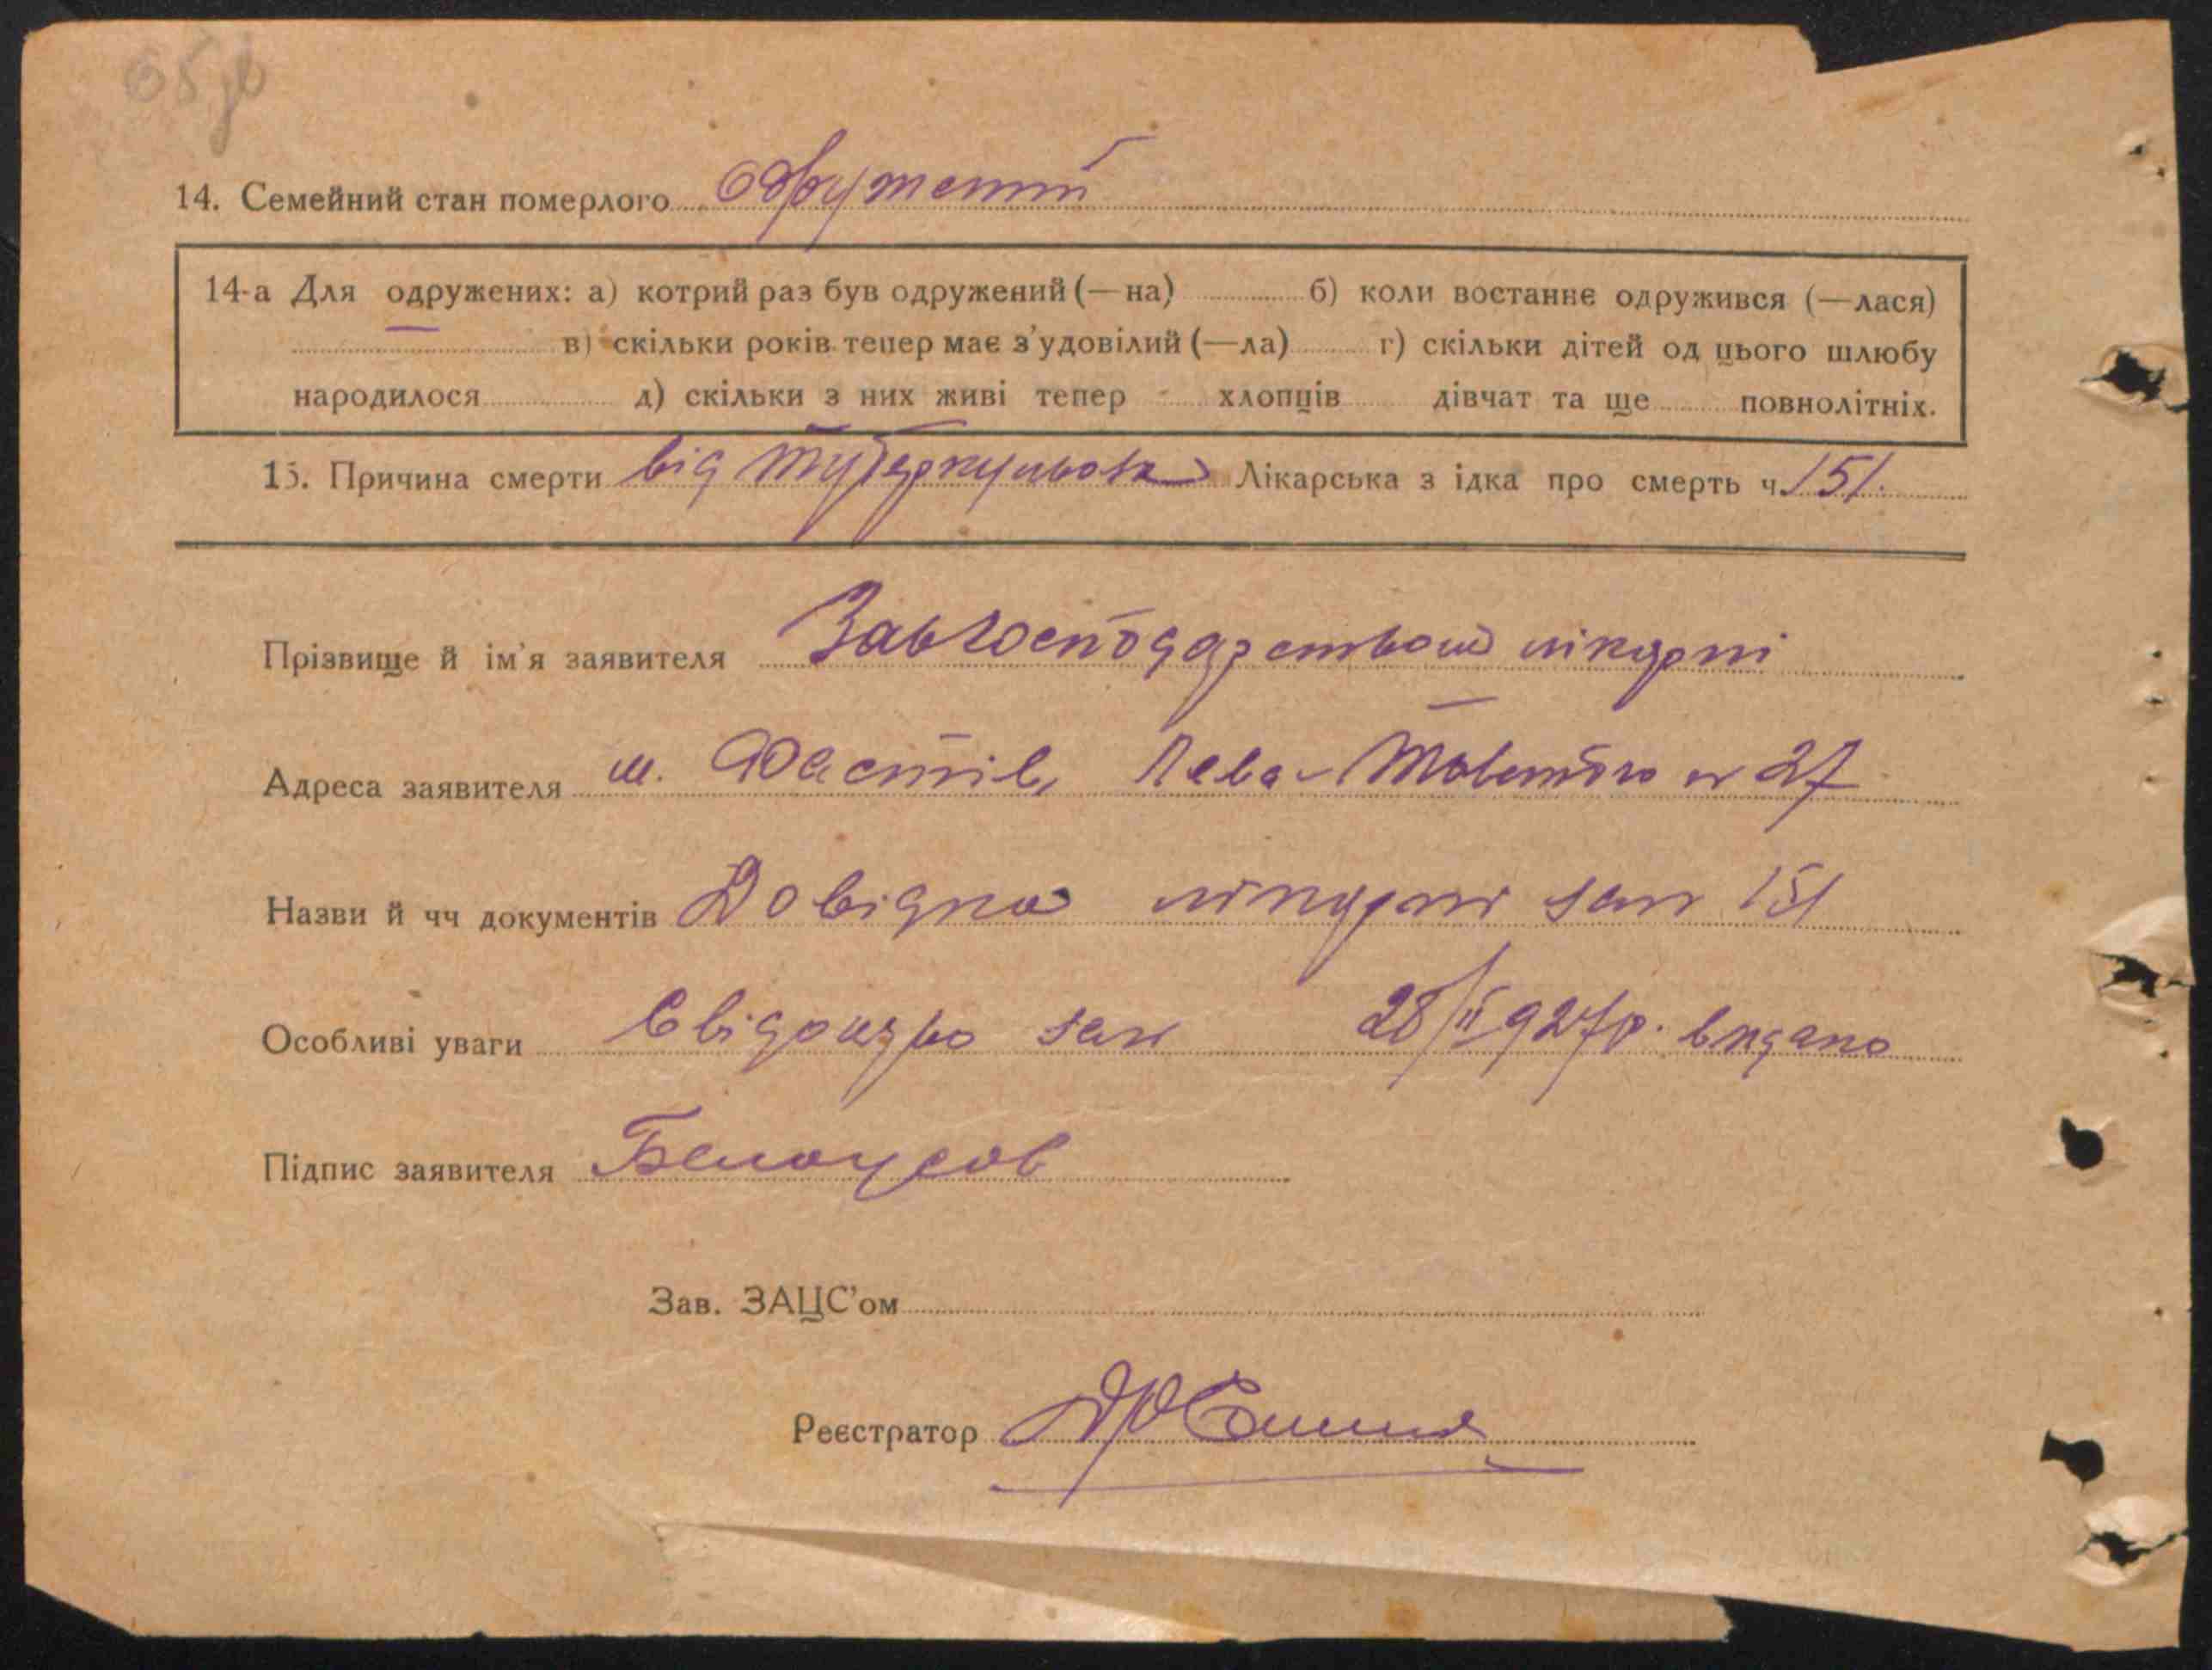 14. Семейний стан померлого Одружений
14-а Для одружених: а) котрий раз був одружений (—на) б) коли востаннє одружився (—лася)
в) скільки років тепер має з'удовілий (—ла) г) скільки дітей од цього шлюбу
народилося д) скільки з них живі тепер хлопців дівчат та ще повнолітніх.
15. Причина смерти від туберкульоза Лікарська з ідка про смерть ч. 151.
Прізвище й ім'я заявителя Завгосподарством лікарні
Адреса заявителя м. Фастів, Лева-Товстого № 27
Назви й чч документів Довідка лікарні за № 151
Особливі уваги Свідоцтво за № 28/II 927 р. видано
Підпис заявителя Белоусов
Зав. ЗАЦС'ом
Реєстратор